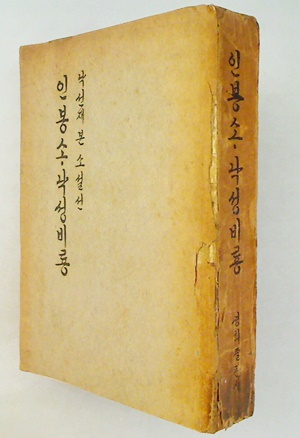 낙선재 본 소설선
인봉소·낙성비룡
인봉소·낙성비룡